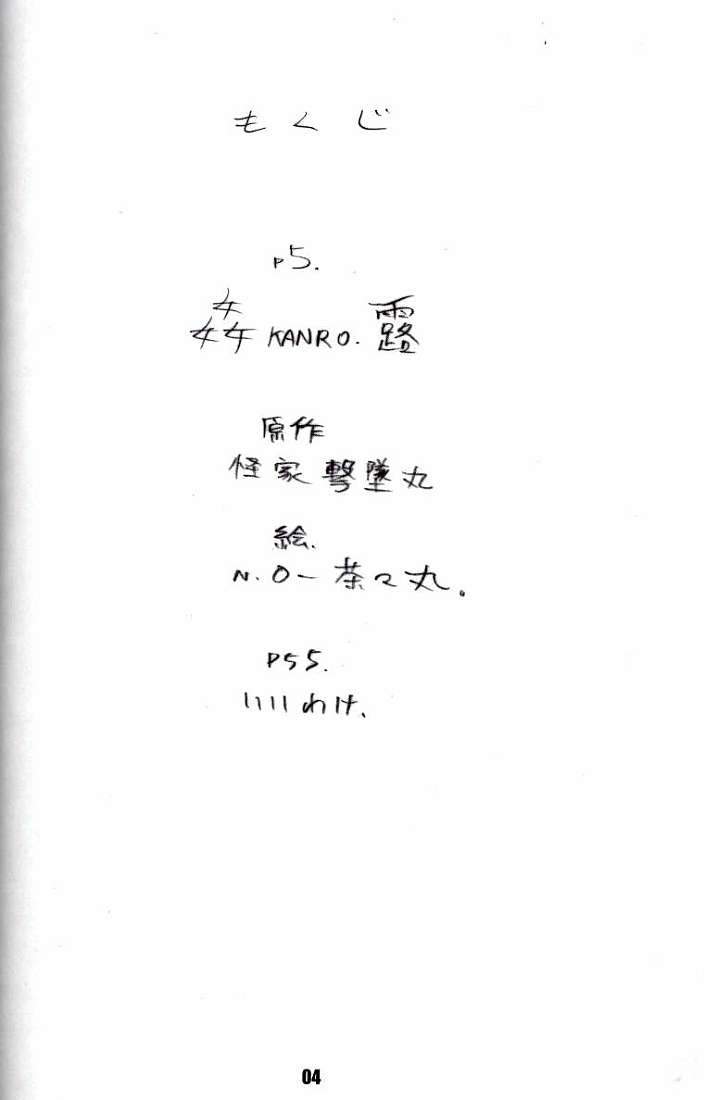 もくじ
P5.
姦 KANRO. 露
原作
怪家撃墜丸
絵.
N.O－茶々丸。
P55.
いいわけ.
04